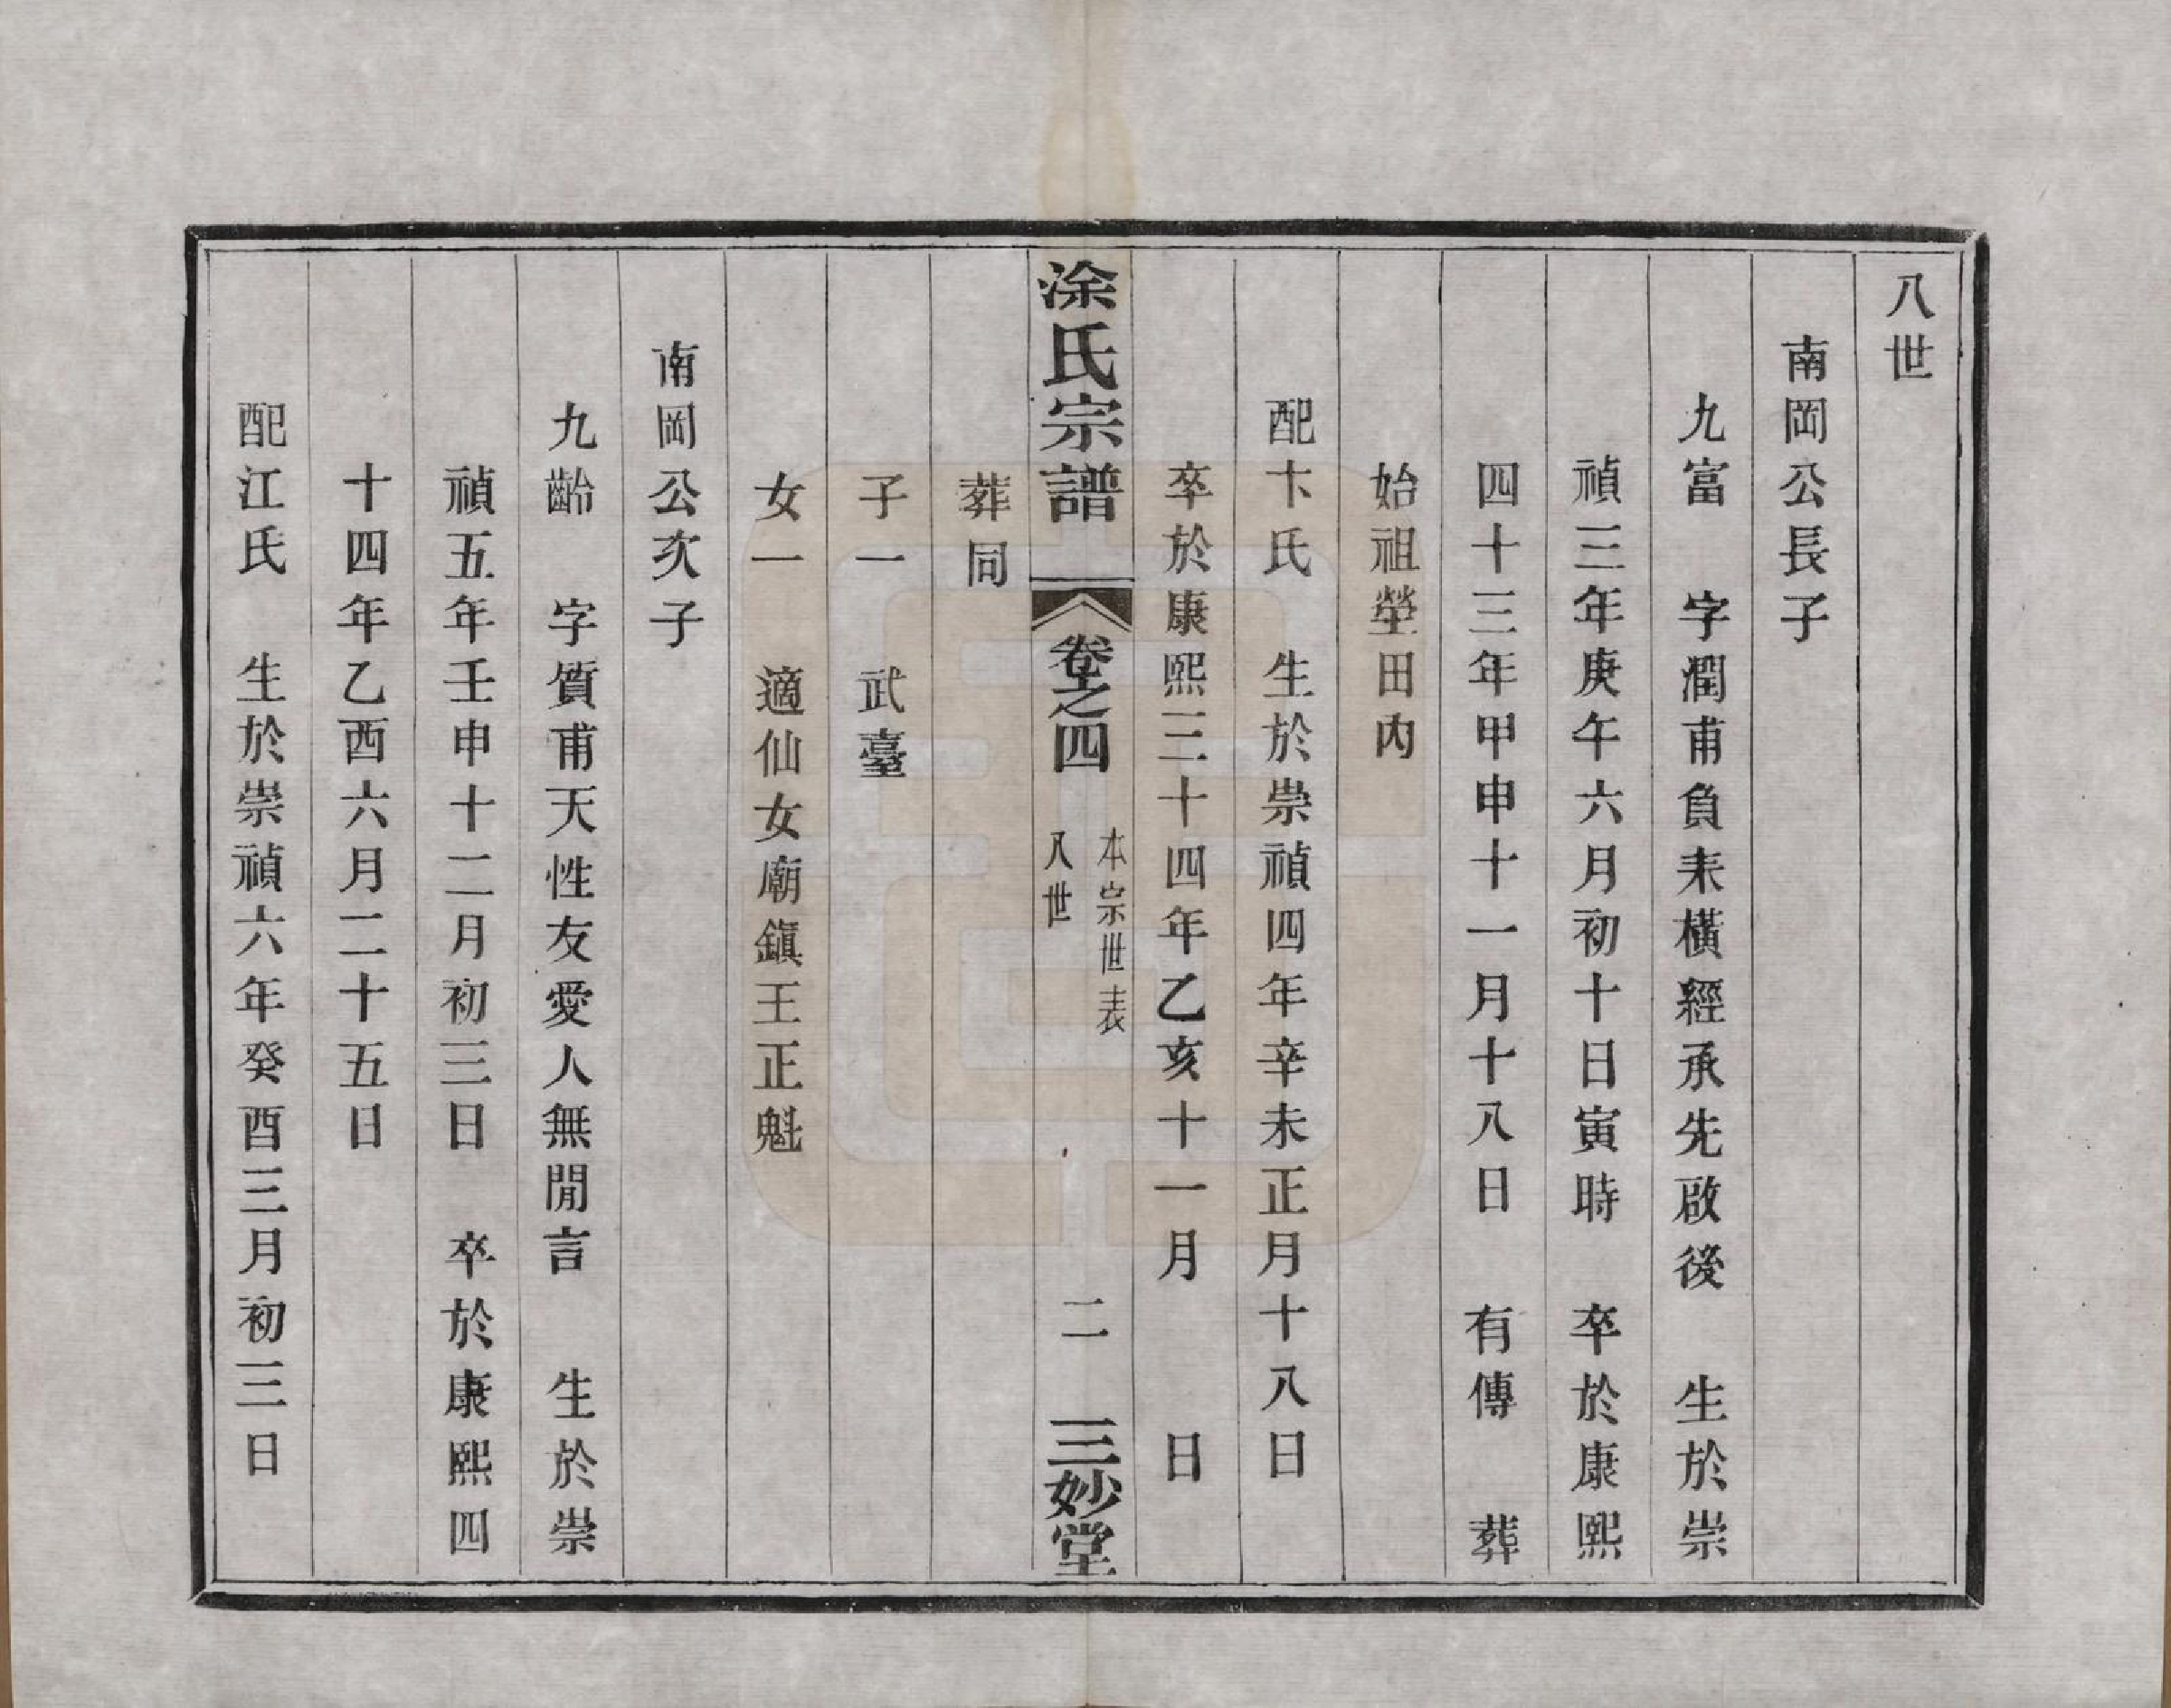 八世
南岡公長子
九富　字潤甫負耒橫經承先啟後　生於崇
禎三年庚午六月初十日寅時　卒於康熙
四十三年甲申十一月十八日　有傳　葬
始祖塋田內
配卞氏　生於崇禎四年辛未正月十八日
卒於康熙三十四年乙亥十一月　　日
涂氏宗譜
卷之四
本宗世表
八世
二
三妙堂
葬同
子一　武臺
女一　適仙女廟鎮王正魁
南岡公次子
九齡　字質甫天性友愛人無閒言　生於崇
禎五年壬申十二月初三日　卒於康熙四
十四年乙酉六月二十五日
配江氏　生於崇禎六年癸酉三月初三日